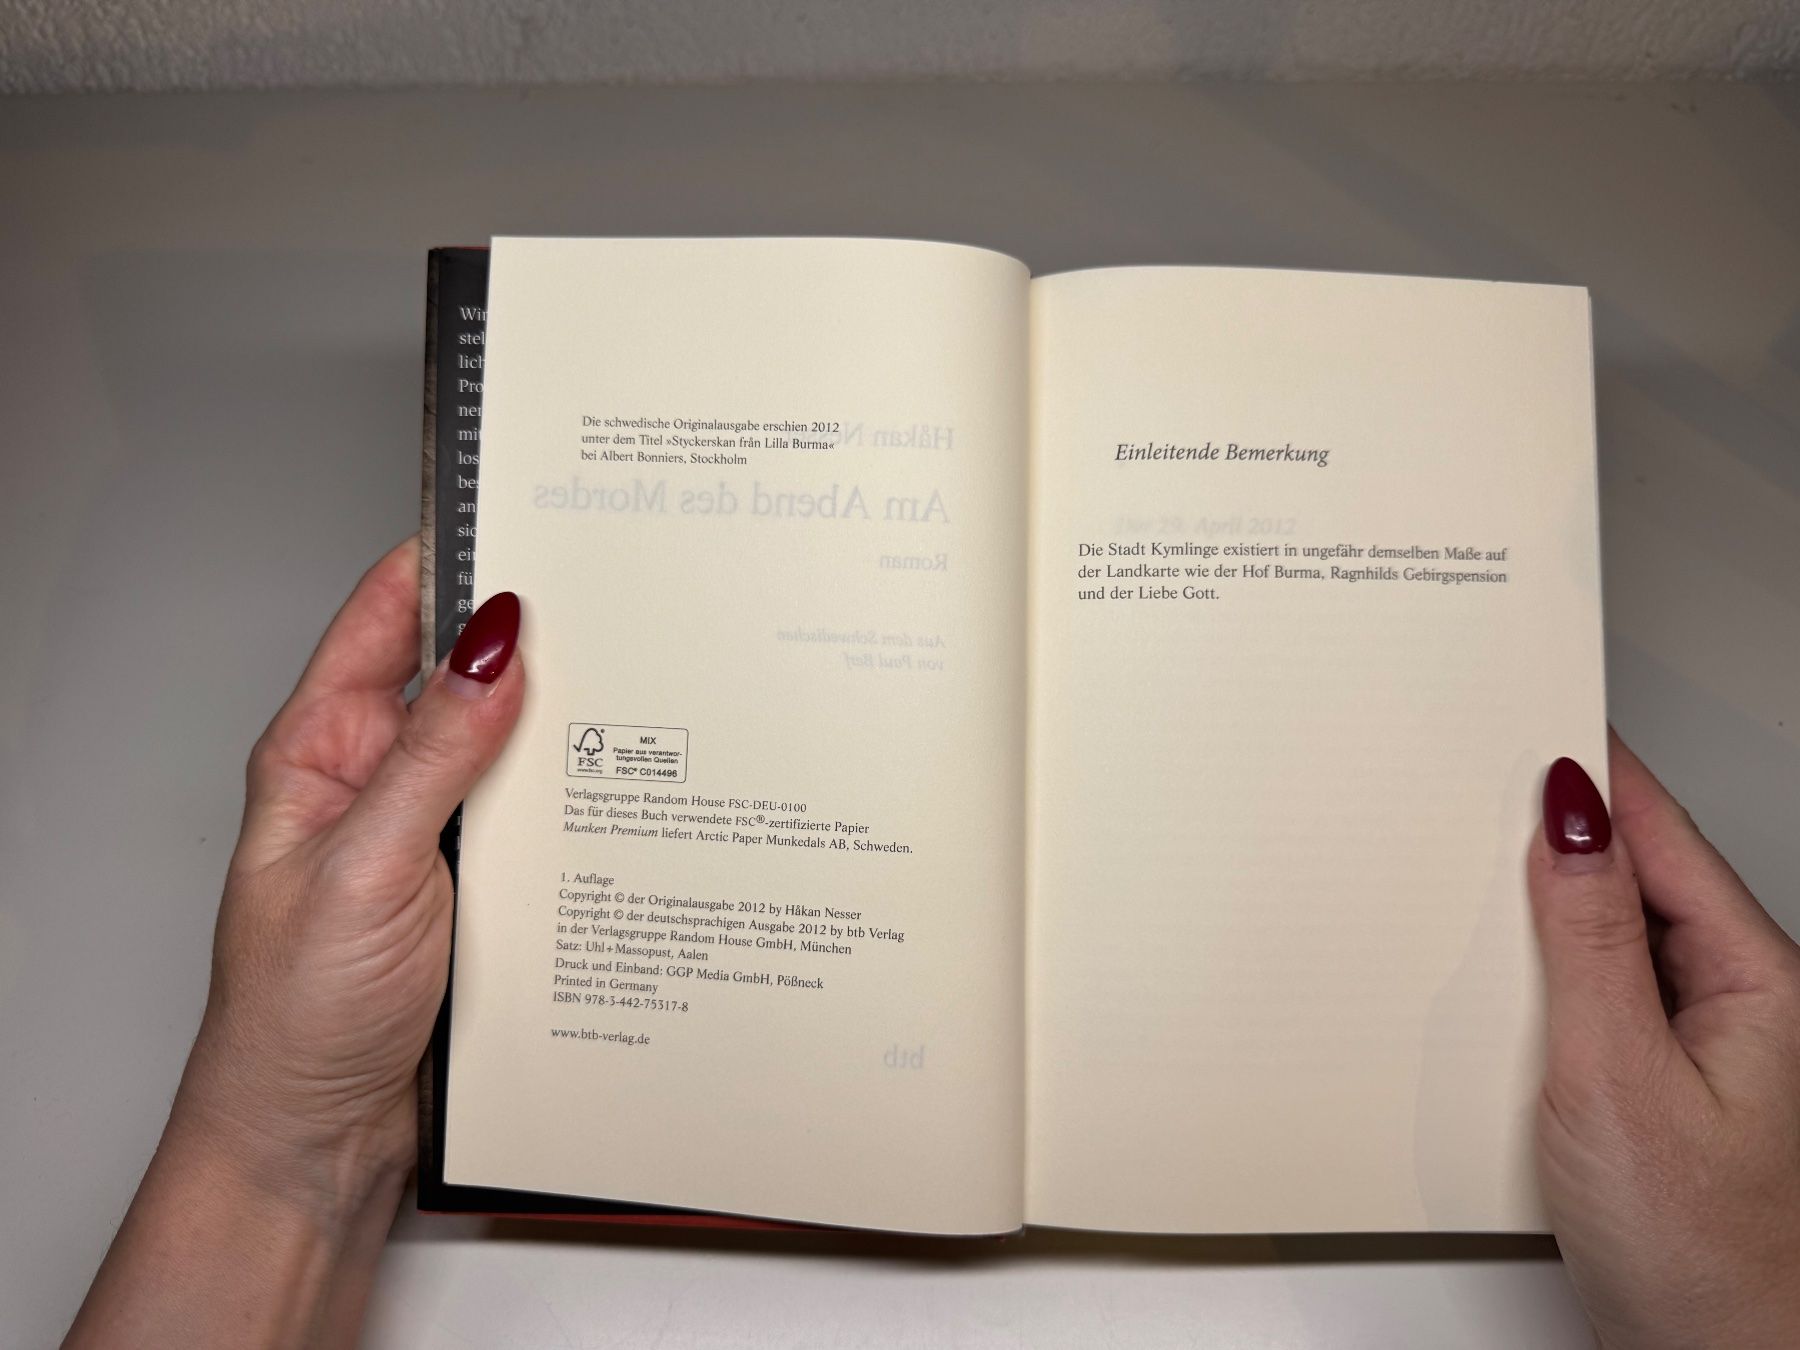 Wir
stel
lich
Pro
ner
mit
los
bes
an
sic
ein
fü
ge
Die schwedische Originalausgabe erschien 2012
unter dem Titel »Styckerskan från Lilla Burma«
bei Albert Bonniers, Stockholm
Håkan Nesser
Am Abend des Mordes
Roman
Aus dem Schwedischen
von Paul Berf
FSC
www.fsc.org
MIX
Papier aus verantwor-
tungsvollen Quellen
FSC® C014496
Verlagsgruppe Random House FSC-DEU-0100
Das für dieses Buch verwendete FSC®-zertifizierte Papier
Munken Premium liefert Arctic Paper Munkedals AB, Schweden.
1. Auflage
Copyright © der Originalausgabe 2012 by Håkan Nesser
Copyright © der deutschsprachigen Ausgabe 2012 by btb Verlag
in der Verlagsgruppe Random House GmbH, München
Satz: Uhl + Massopust, Aalen
Druck und Einband: GGP Media GmbH, Pößneck
Printed in Germany
ISBN 978-3-442-75317-8
www.btb-verlag.de
btb
Einleitende Bemerkung
29. April 2012
Die Stadt Kymlinge existiert in ungefähr demselben Maße auf
der Landkarte wie der Hof Burma, Ragnhilds Gebirgspension
und der Liebe Gott.